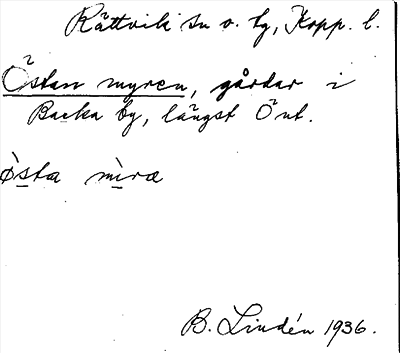 Rättvik sn o. hg, Kopp. l.
Östan myren, gårdar i
Backa by, längst Önt.
ö̀sta mìræ
B. Lindén 1936.